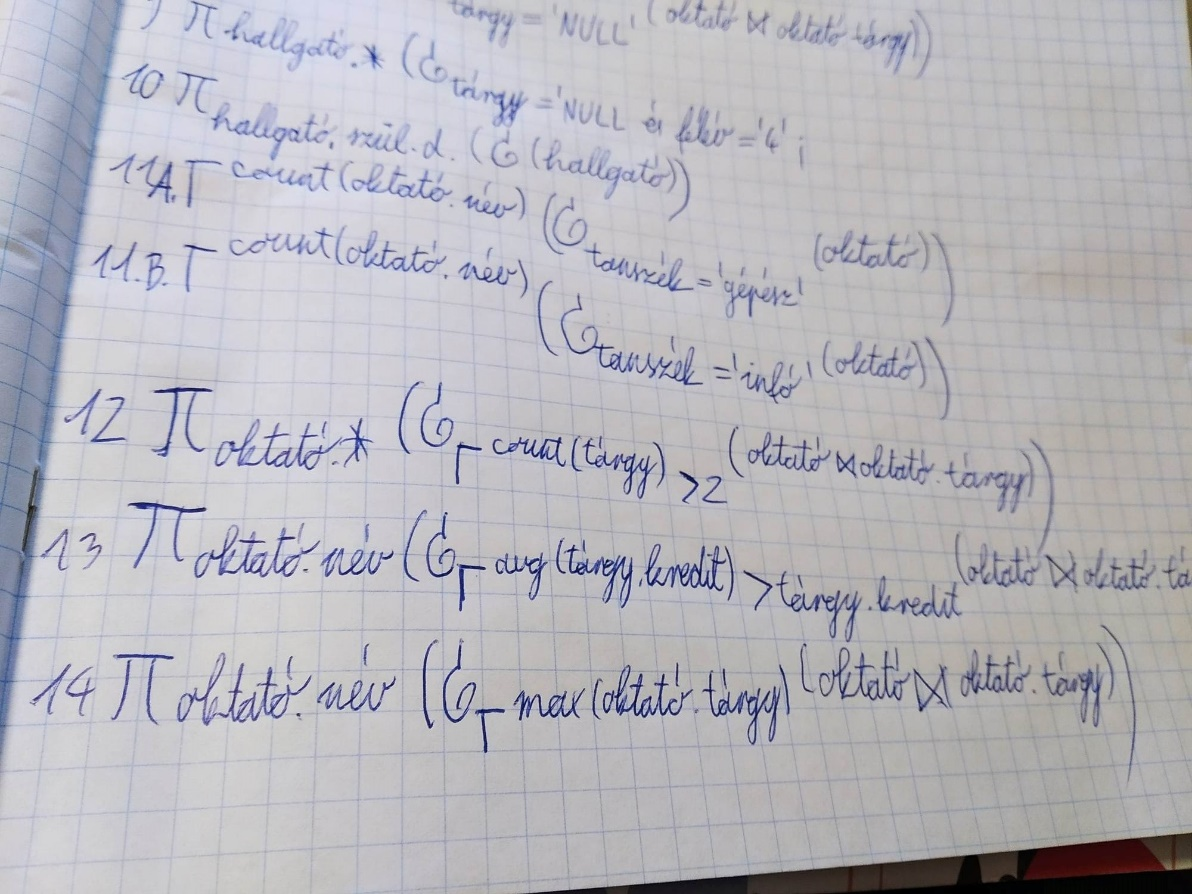 tárgy = 'NULL' (oktató ⋈ oktató.tárgy))
) π hallgató.* (σ tárgy = 'NULL és félév = '4' ;
10 π hallgató.szül.d. (σ (hallgató))
11A. Γ count(oktató.név) (σ tanszék = 'gépész' (oktató))
11.B. Γ count(oktató.név) (σ tanszék = 'infó' (oktató))
12 π oktató.* (σ Γ count(tárgy) >2 (oktató ⋈ oktató.tárgy))
13 π oktató.név (σ Γ avg (tárgy.kredit) > tárgy.kredit (oktató ⋈ oktató.tá
14 π oktató.név (σ Γ max (oktató.tárgy) (oktató ⋈ oktató.tárgy))